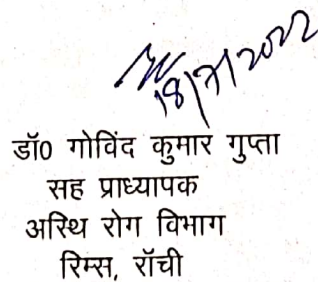 18/7/2022
डॉ0 गोविंद कुमार गुप्ता
सह प्राध्यापक
अस्थि रोग विभाग
रिम्स, रॉची